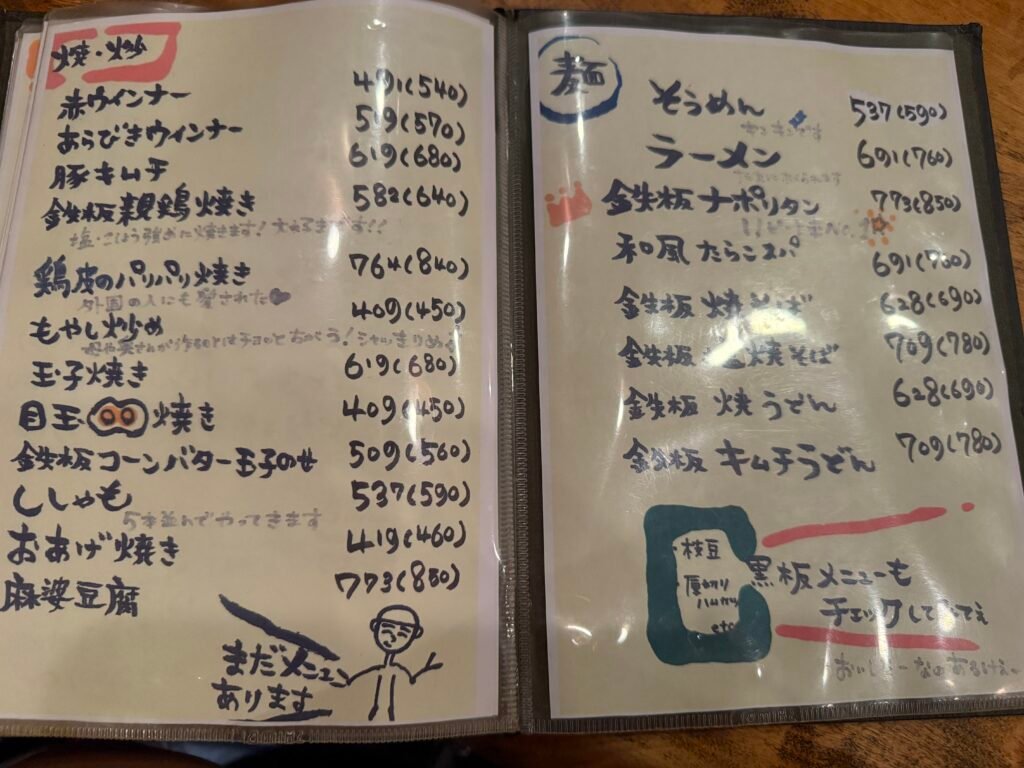 焼・炒
赤ウインナー 491(540)
あらびきウインナー 519(570)
豚キムチ 619(680)
鉄板親鶏焼き 582(640)
塩・こしょう強めに焼きます!
鶏皮のパリパリ焼き 764(840)
外国の人にも愛された
もやし炒め 409(450)
玉子焼き 619(680)
目玉焼き 409(450)
鉄板コーンバター玉子のせ 509(560)
ししゃも 537(590)
5本並んでやってきます
おあげ焼き 419(460)
麻婆豆腐 773(850)
まだメニュー
あります
麺
そうめん 537(590)
ラーメン 691(760)
鉄板ナポリタン 773(850)
和風たらこスパ 691(760)
鉄板焼そば 628(690)
鉄板 焼そば 709(780)
鉄板焼うどん 628(690)
鉄板キムチうどん 709(780)
・枝豆
・厚切り
ハムカツ
etc
黒板メニューも
チェックしてみてぇ